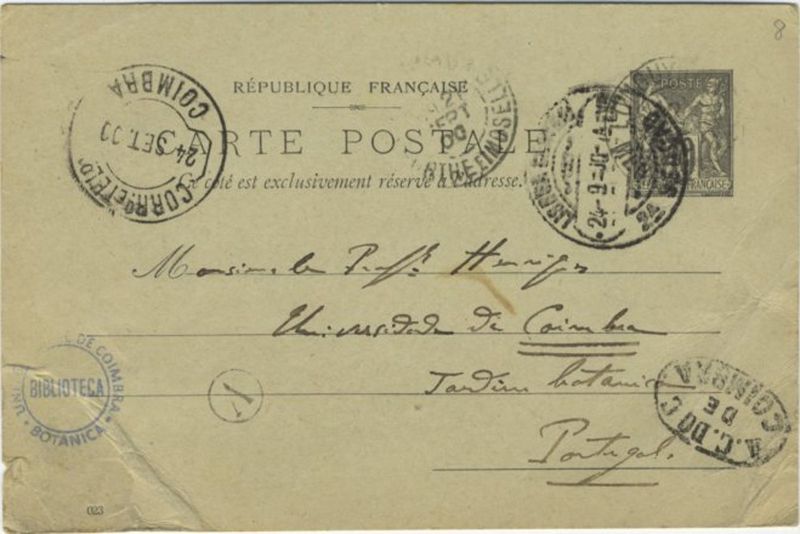 8
RÉPUBLIQUE FRANÇAISE
CARTE POSTALE
Ce côté est exclusivement réservé à l'adresse.
POSTE
FRANÇAISE
COIMBRA
24 SET. 00
SEPT
00
24-9-10
24
Monsieur le Profr. Henriques
Universidade de Coimbra
Jardim botanico
Portugal.
DE COIMBRA
BIBLIOTECA
BOTANICA
UNI
A. C. DO C
DE
COIMBRA
023